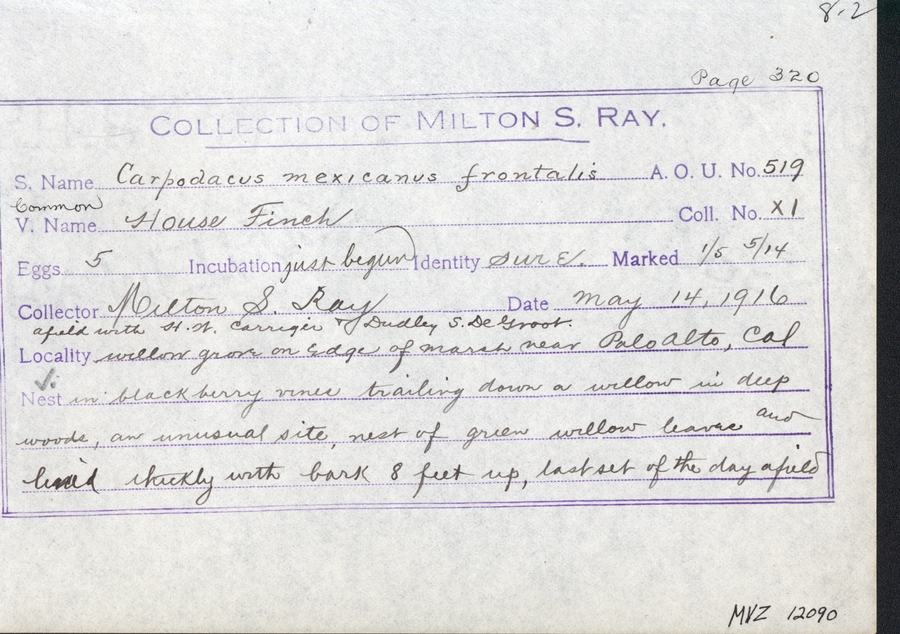 8-2
Page 320
COLLECTION OF MILTON S. RAY.
S. Name Carpodacus mexicanus frontalis A. O. U. No. 519
Common
V. Name House Finch Coll. No. X1
Eggs 5 Incubation just begun Identity sure. Marked 1/5 5/14
Collector Milton S. Ray Date May 14, 1916
afield with H. W. Carriger & Dudley S. De Groot.
Locality willow grove on edge of marsh near Palo Alto, Cal
Nest in blackberry vines trailing down a willow in deep
woods, an unusual site, nest of green willow leaves and
lined thickly with bark 8 feet up, last set of the day afield
MVZ 12090